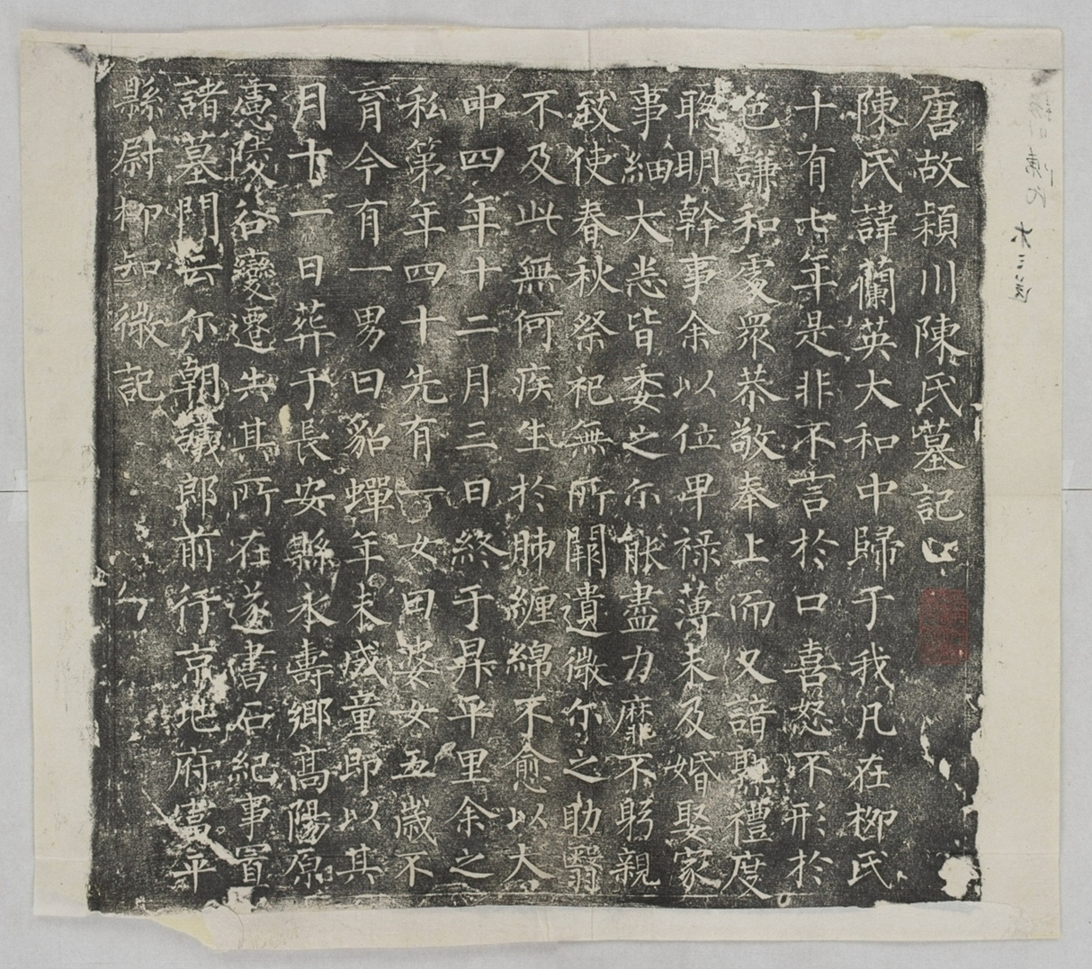 唐故潁川陳氏墓記
陳氏諱蘭英大和中歸于我凡在柳氏
十有七年是非不言於口喜怒不形於
色謙和處衆恭敬奉上而又諳熟禮度
聦明幹事余以位卑祿薄未及婚娶家
事細大悉皆委之尓能盡力靡不躬親
致使春秋祭祀無所闕遺微尓之助翳
不及此無何疾生於肺纏綿不愈以大
中四年十二月三日終于昇平里余之
私第年四十先有一女曰婆女五歲不
育今有一男曰貂蟬年未成童即以其
月十一日葬于長安縣永壽鄉高陽原
慮陵谷變遷失其所在遂書石紀事寘
諸墓門云尓朝議郎前行京地府富平
縣尉柳知微記